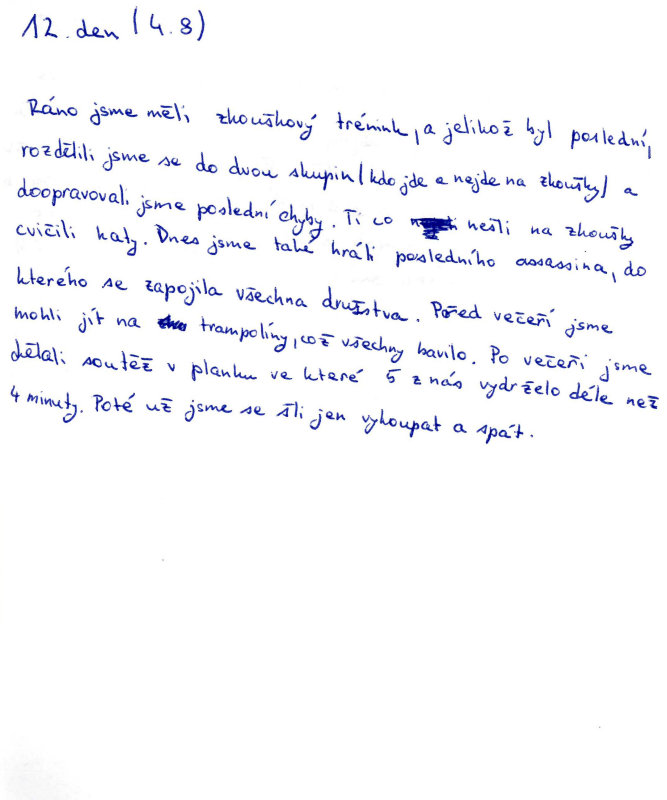 12. den (4.8)
Ráno jsme měli zkouškový trénink, a jelikož byl poslední,
rozdělili jsme se do dvou skupin (kdo jde a nejde na zkoušky) a
doopravovali jsme poslední chyby. Ti co nešli na zkoušky
cvičili katy. Dnes jsme také hráli posledního assassina, do
kterého se zapojila všechna družstva. Před večeří jsme
mohli jít na trampolíny, což všechny bavilo. Po večeři jsme
dělali soutěž v planku ve které 5 z nás vydrželo déle než
4 minuty. Poté už jsme se šli jen vykoupat a spát.